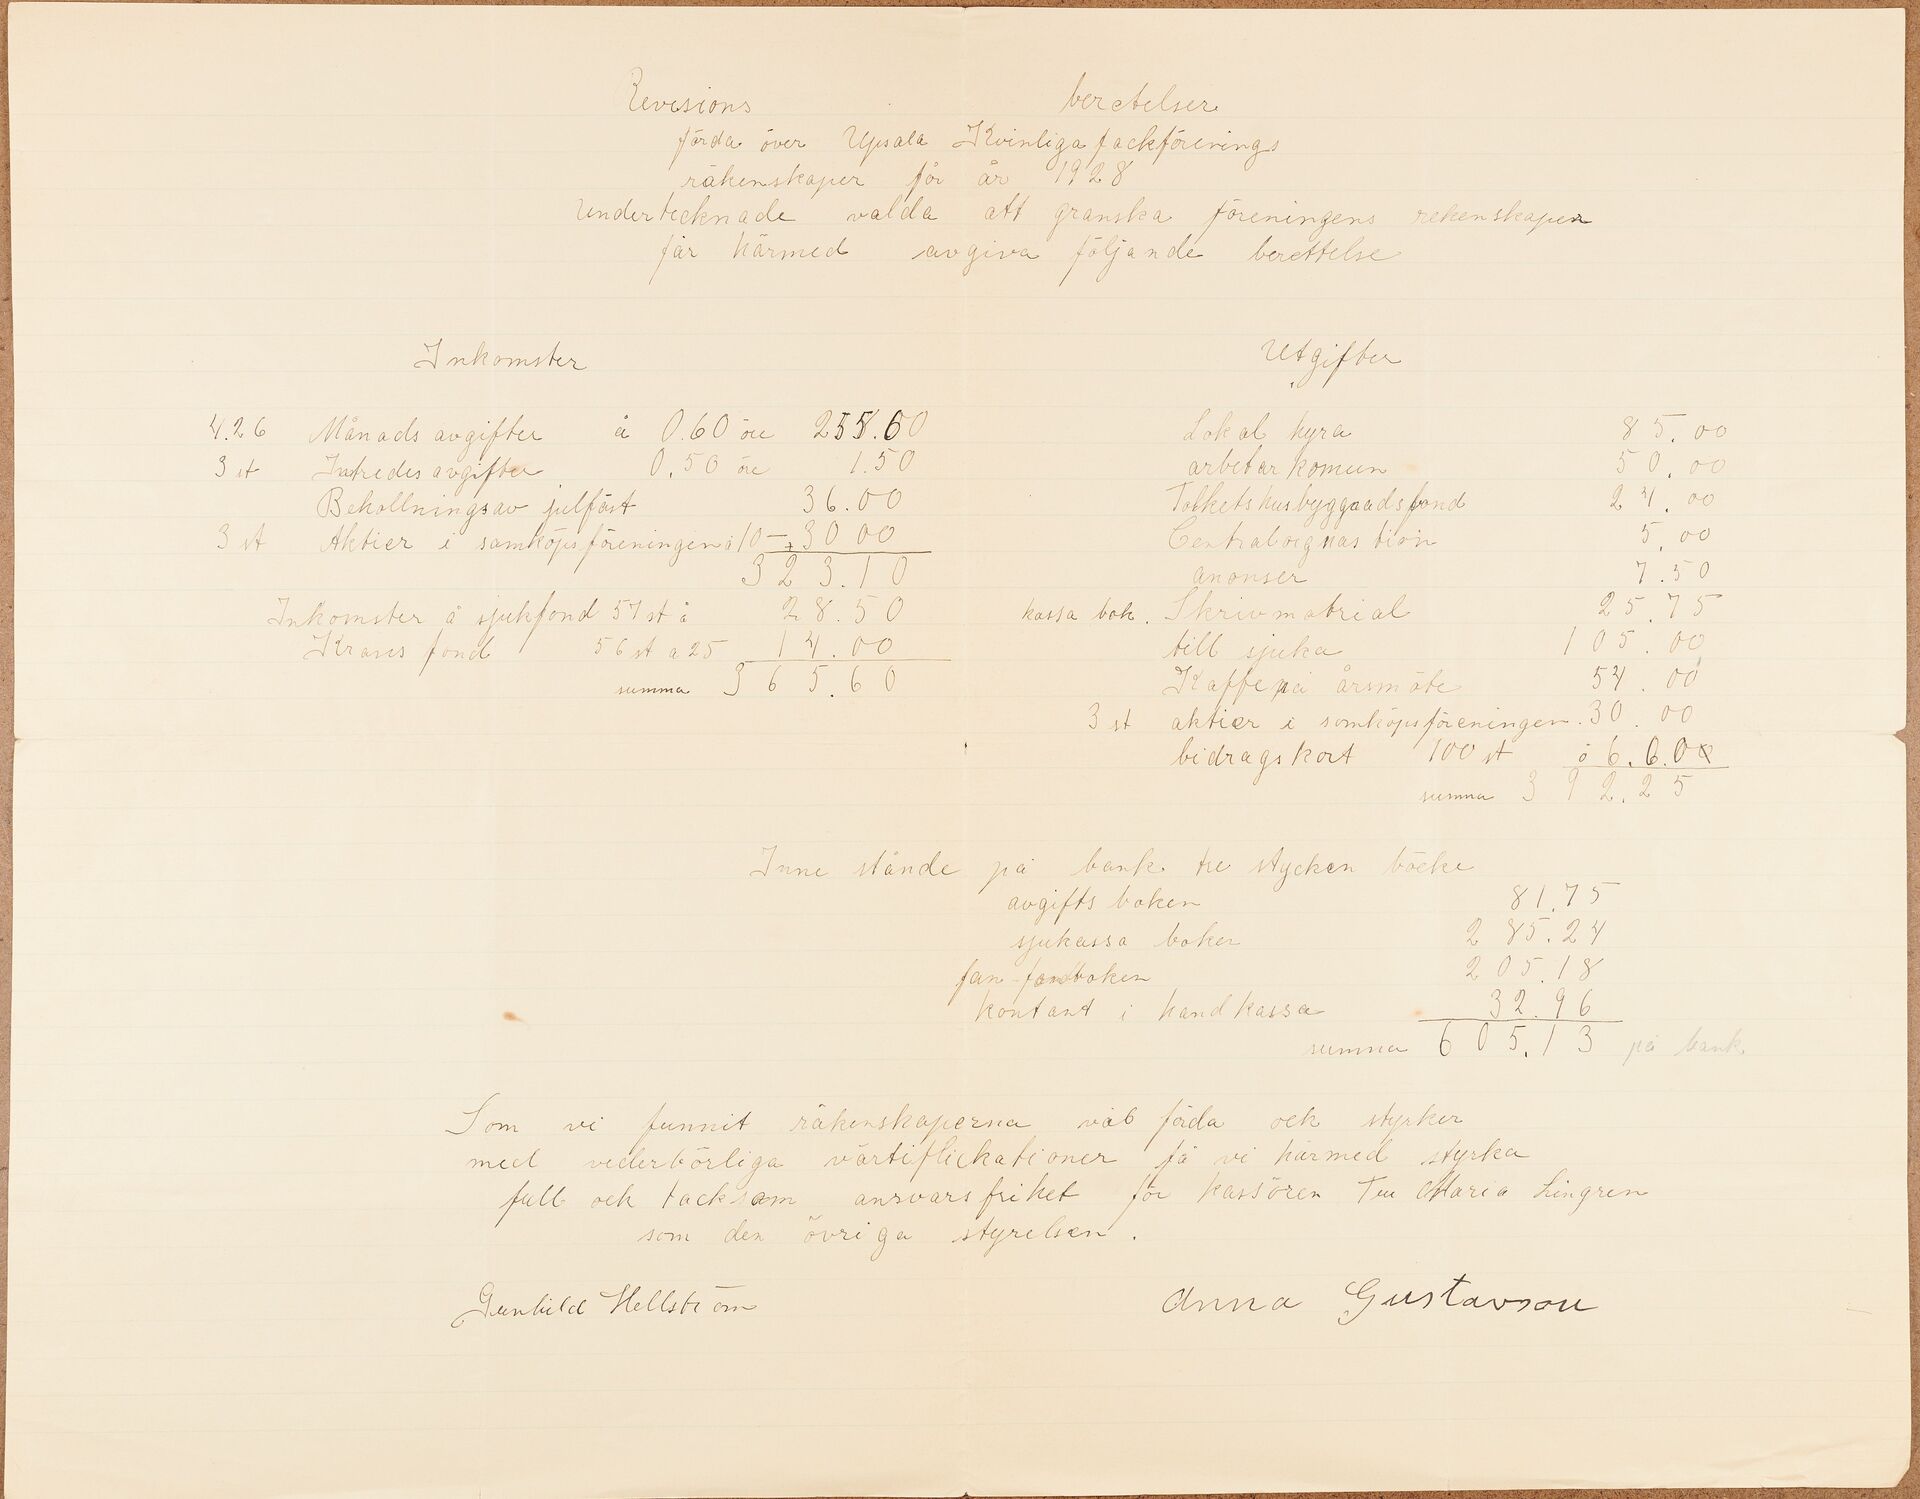 Revisions beretelser
förda över Upsala Kvinliga fackförenings
räkenskaper för år 1928
Undertecknade valda att granska föreningens rekenskaper
får härmed avgiva följande berettelse
Inkomster
426 Månads avgifter å 0.60 öre 255.60
3 st Intredesavgifter 0.50 öre 1.50
Behollningsav julfäst 36.00
3 st Aktier i samköpsföreningen á 10 - + 30 00
323.10
Inkomster å sjukfond 57 st á 28.50
Krans fond 56 st a 25 14.00
summa 365.60
Utgifter
Lokal hyra 85.00
arbetar komun 50.00
Folketshusbyggnadsfond 24.00
5.00
anonser 7.50
kassa bok. Skrivmatrial 25.75
till sjuka 105.00
Kaffe på årsmöte 54.00
3 st aktier i somköpsföreningen. 30.00
bidragskort 100 st á 6.00
summa 392.25
Inne stånde på bank tre stycken böcke
avgifts boken 81.75
sjukassa boken 285.24
fan fondboken 205.18
kontant i handkassa 32.96
summa 605.13 på bank
Som vi funnit räkenskaperna väl föda och styrker
med vederbörliga värtiflickationer få vi härmed styrka
full och tacksam ansvarsfriket för kassören Fru Maria Lingren
som den övriga styrelsen.
Gunhild Hellström
Anna Gustavson